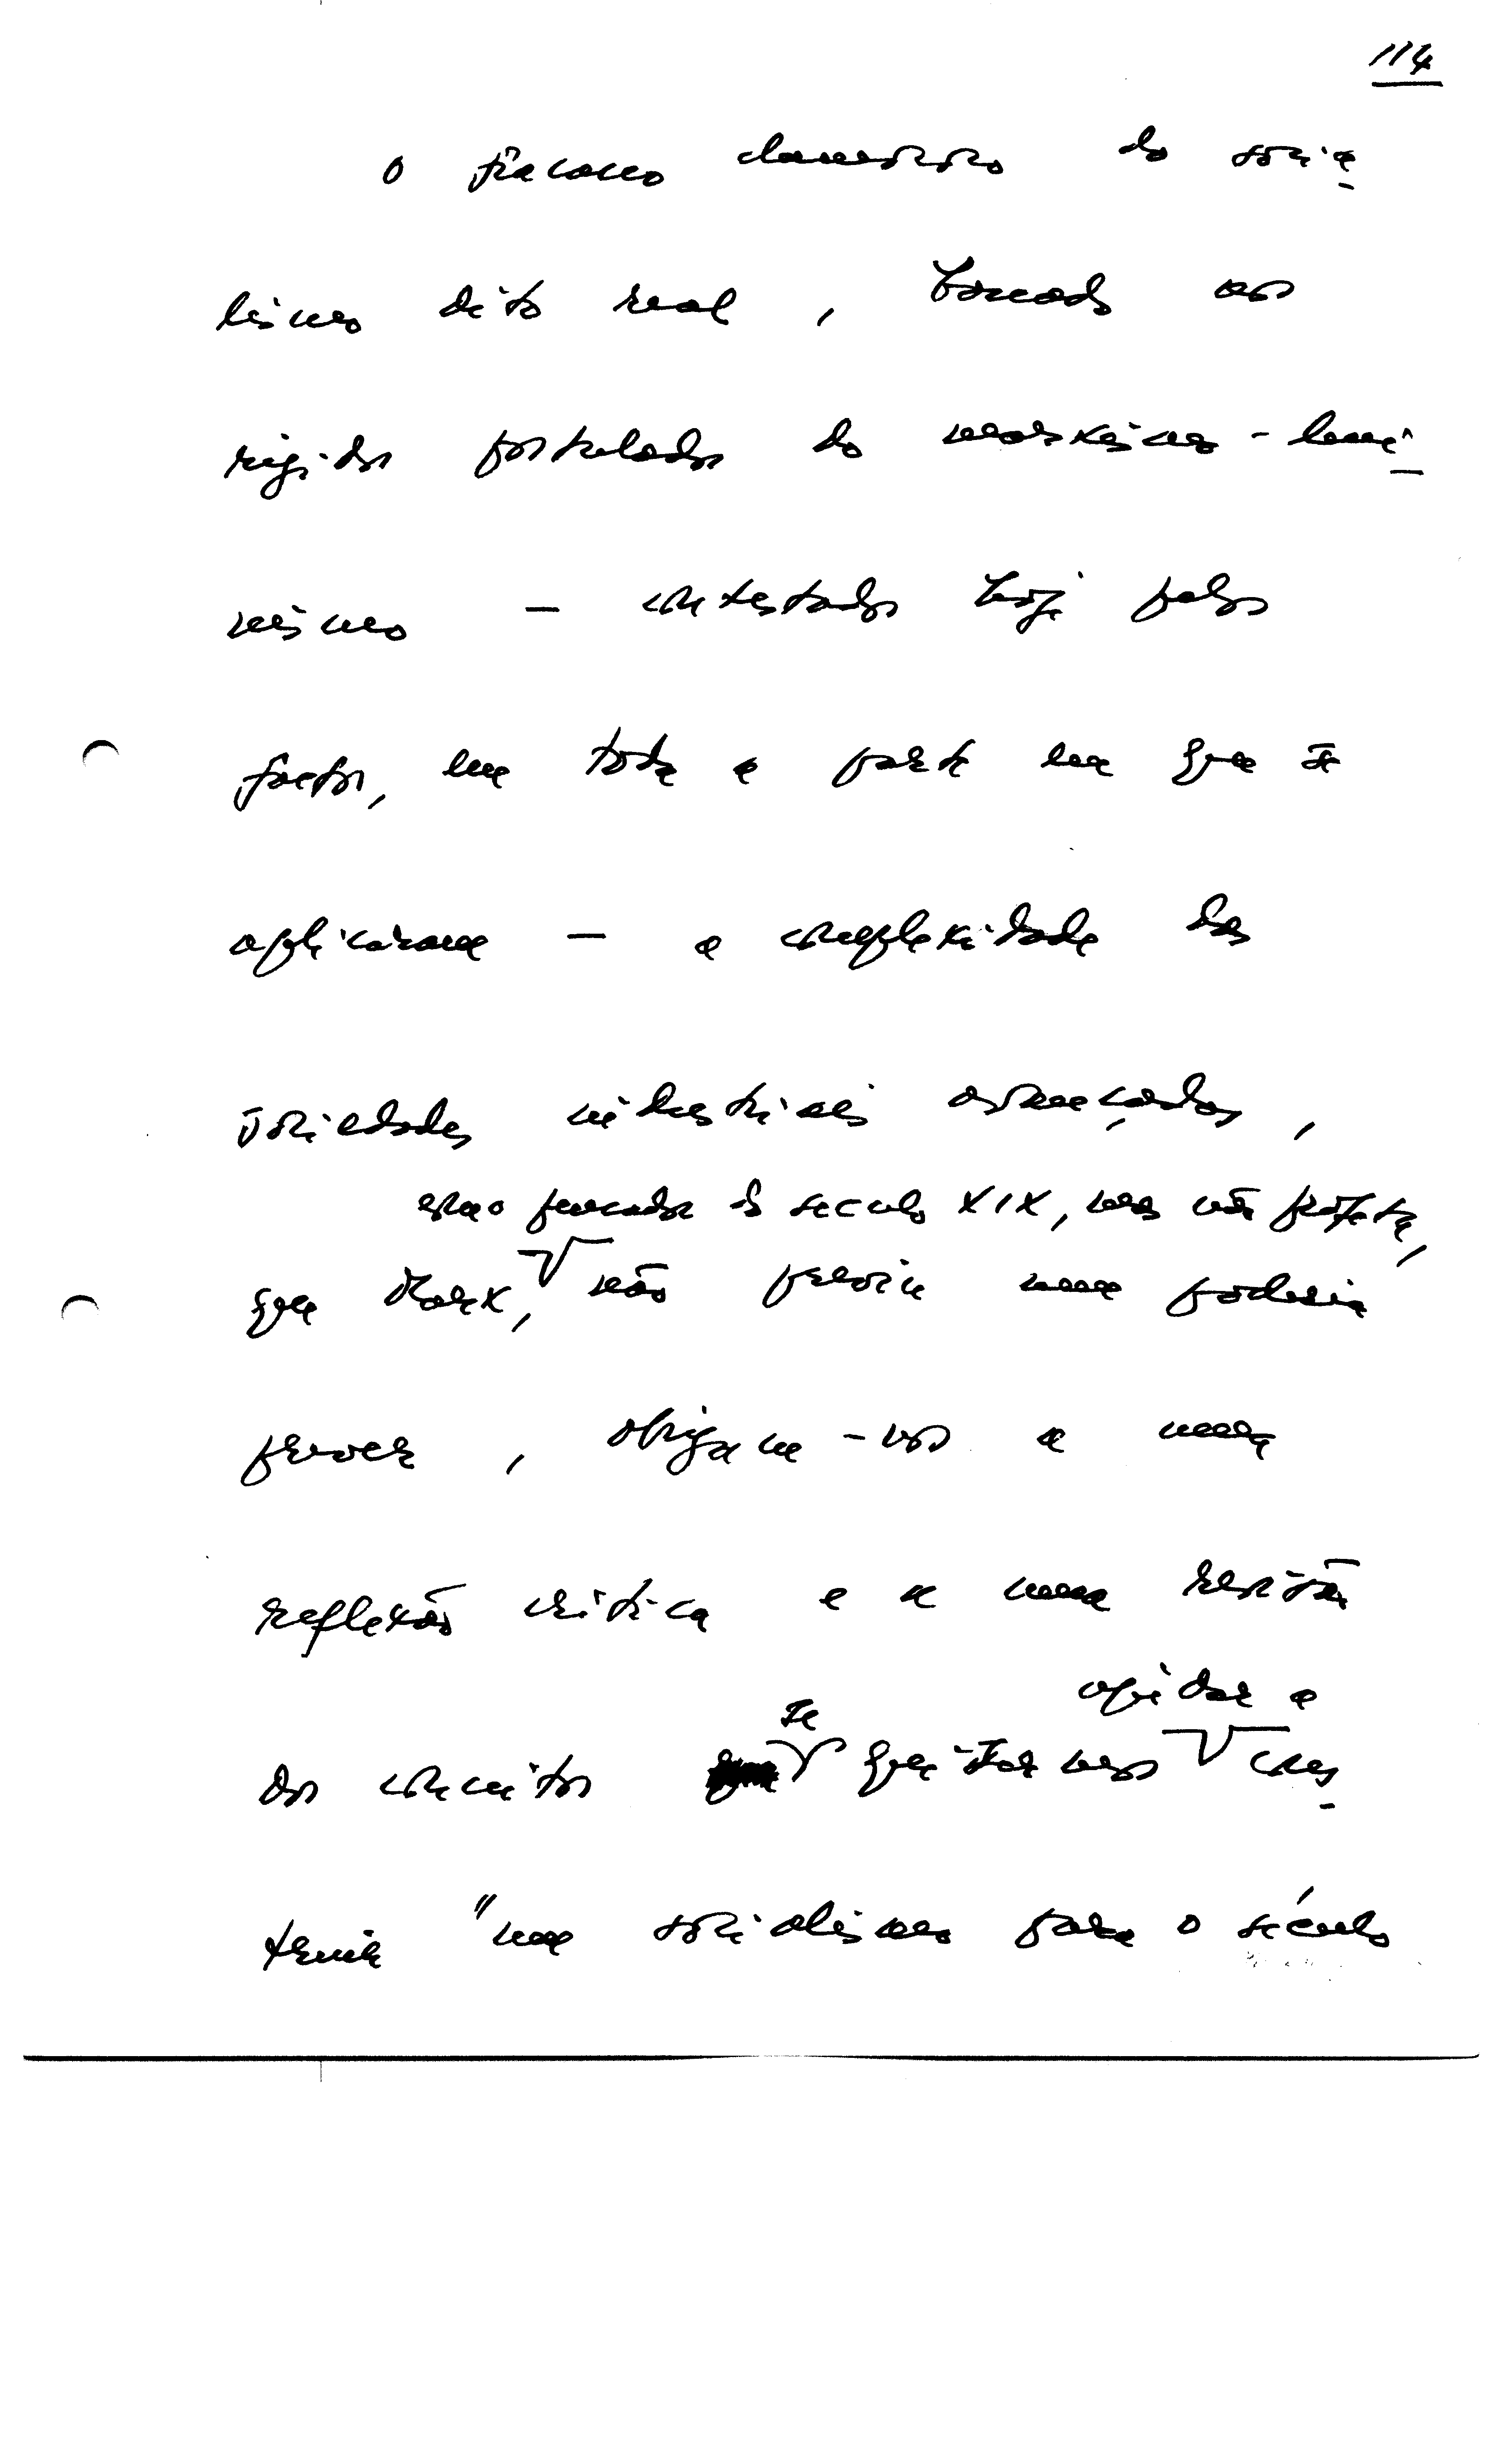 114
O fracasso clamoroso do socia
lismo dito real, baseado nos
rigidos postulados do marxismo-leni
nismo — contestados hoje pelos
factos, em toda a parte em que se
aplicaram — a complexidade das
sociedades industriais avançadas,
como pensador do seculo XIX, mas não profeta,
que Marx, não previu nem poderia
prever, obrigam-nos a uma
reflexão critica e a uma revisão
se ajudar a
dos conceitos quisermos cons
truir "um socialismo para o século